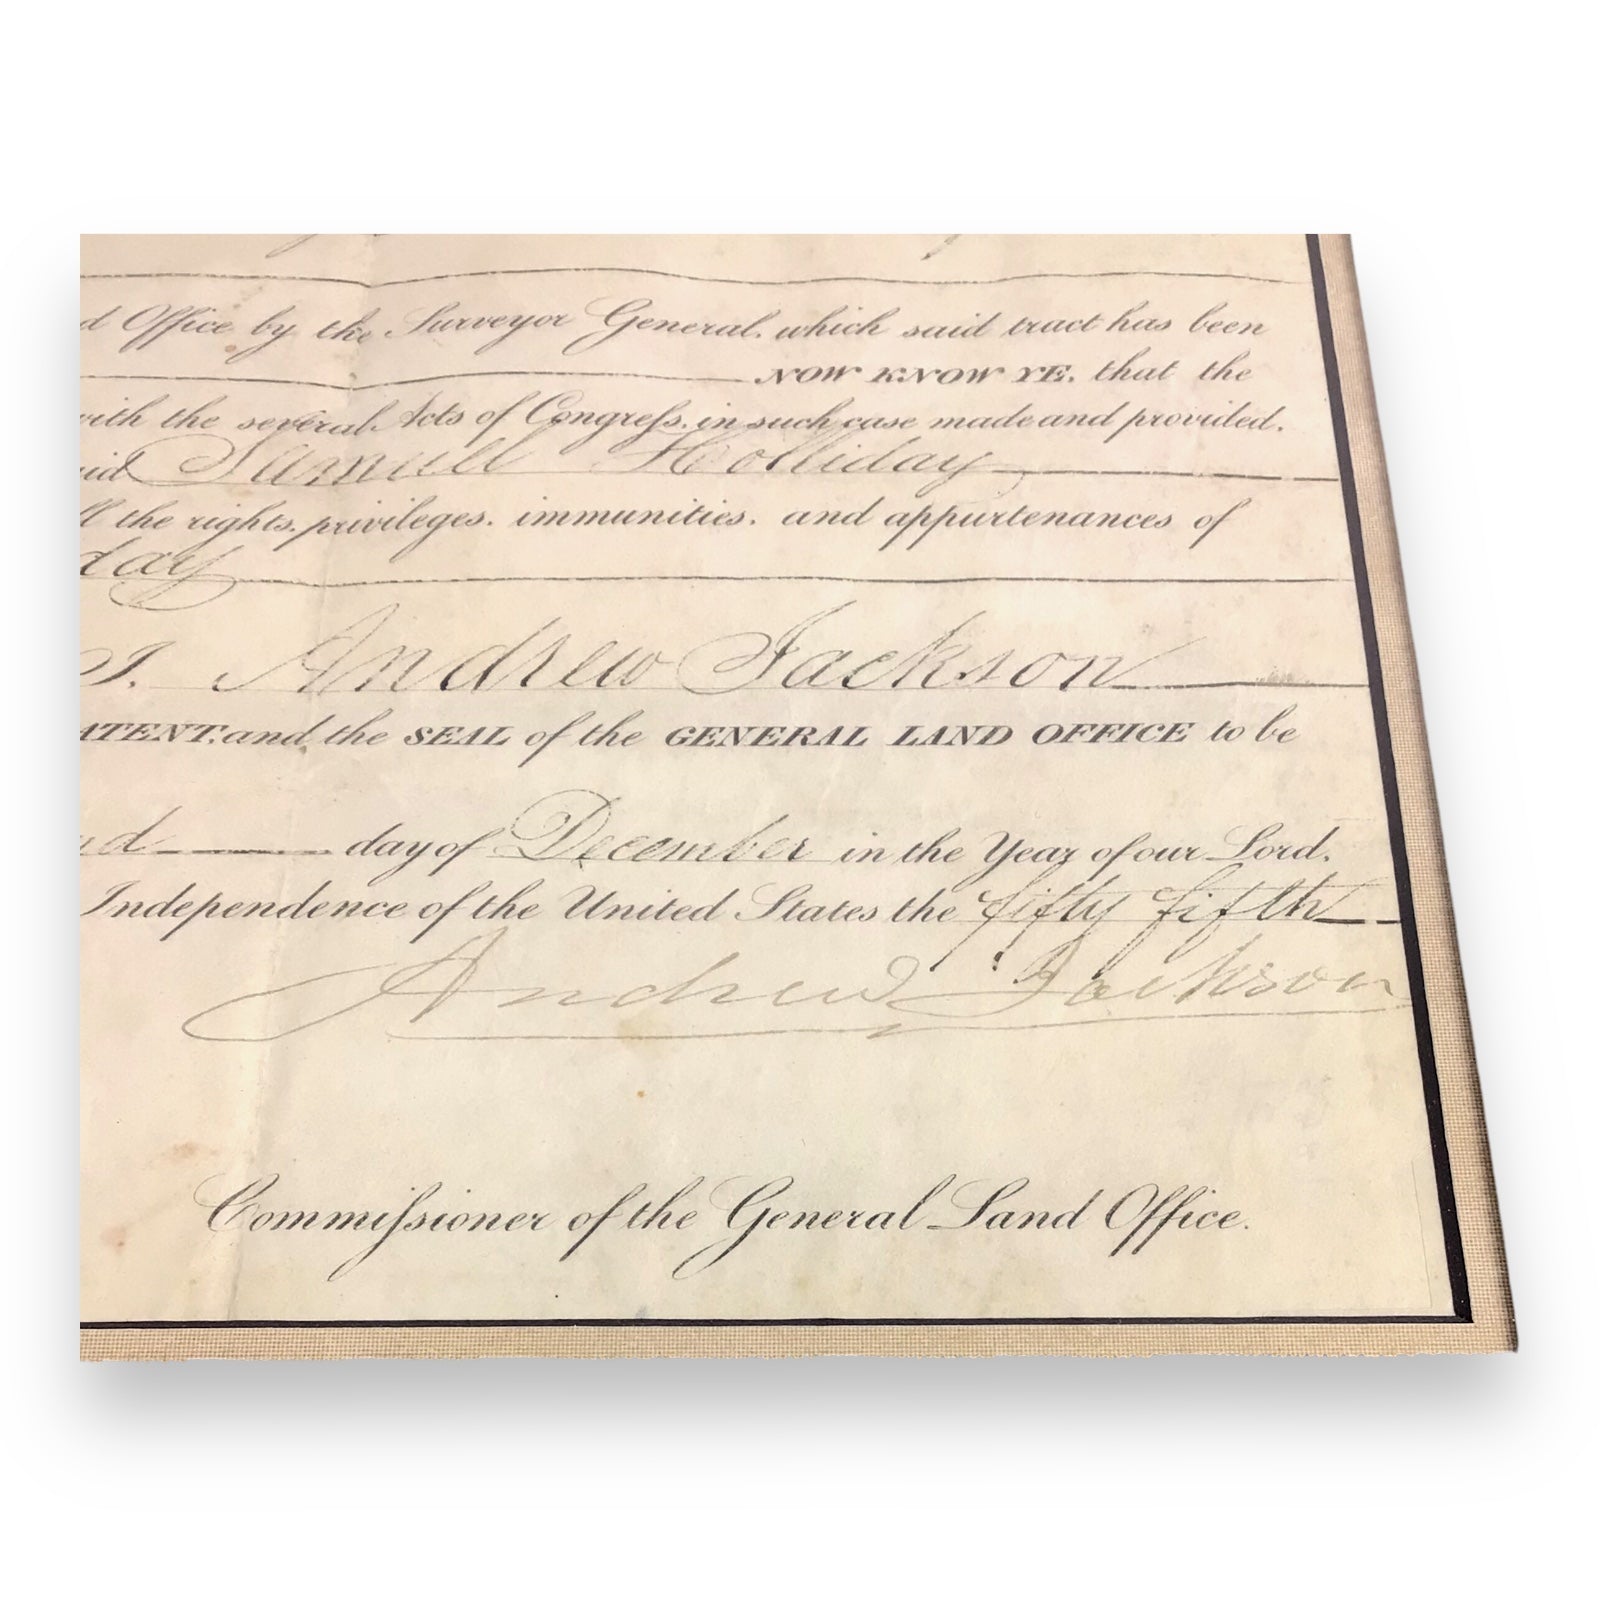 d Office by the Surveyor General, which said tract has been
NOW KNOW YE, that the
with the several Acts of Congreſs, in such case made and provided,
aid Samuel Holliday
ll the rights, privileges, immunities, and appurtenances of
day
I, Andrew Jackson
ATENT, and the SEAL of the GENERAL LAND OFFICE to be
nd day of December in the Year of our Lord,
Independence of the United States the fifty fifth
Andrew Jackson
Commiſsioner of the General Land Office.